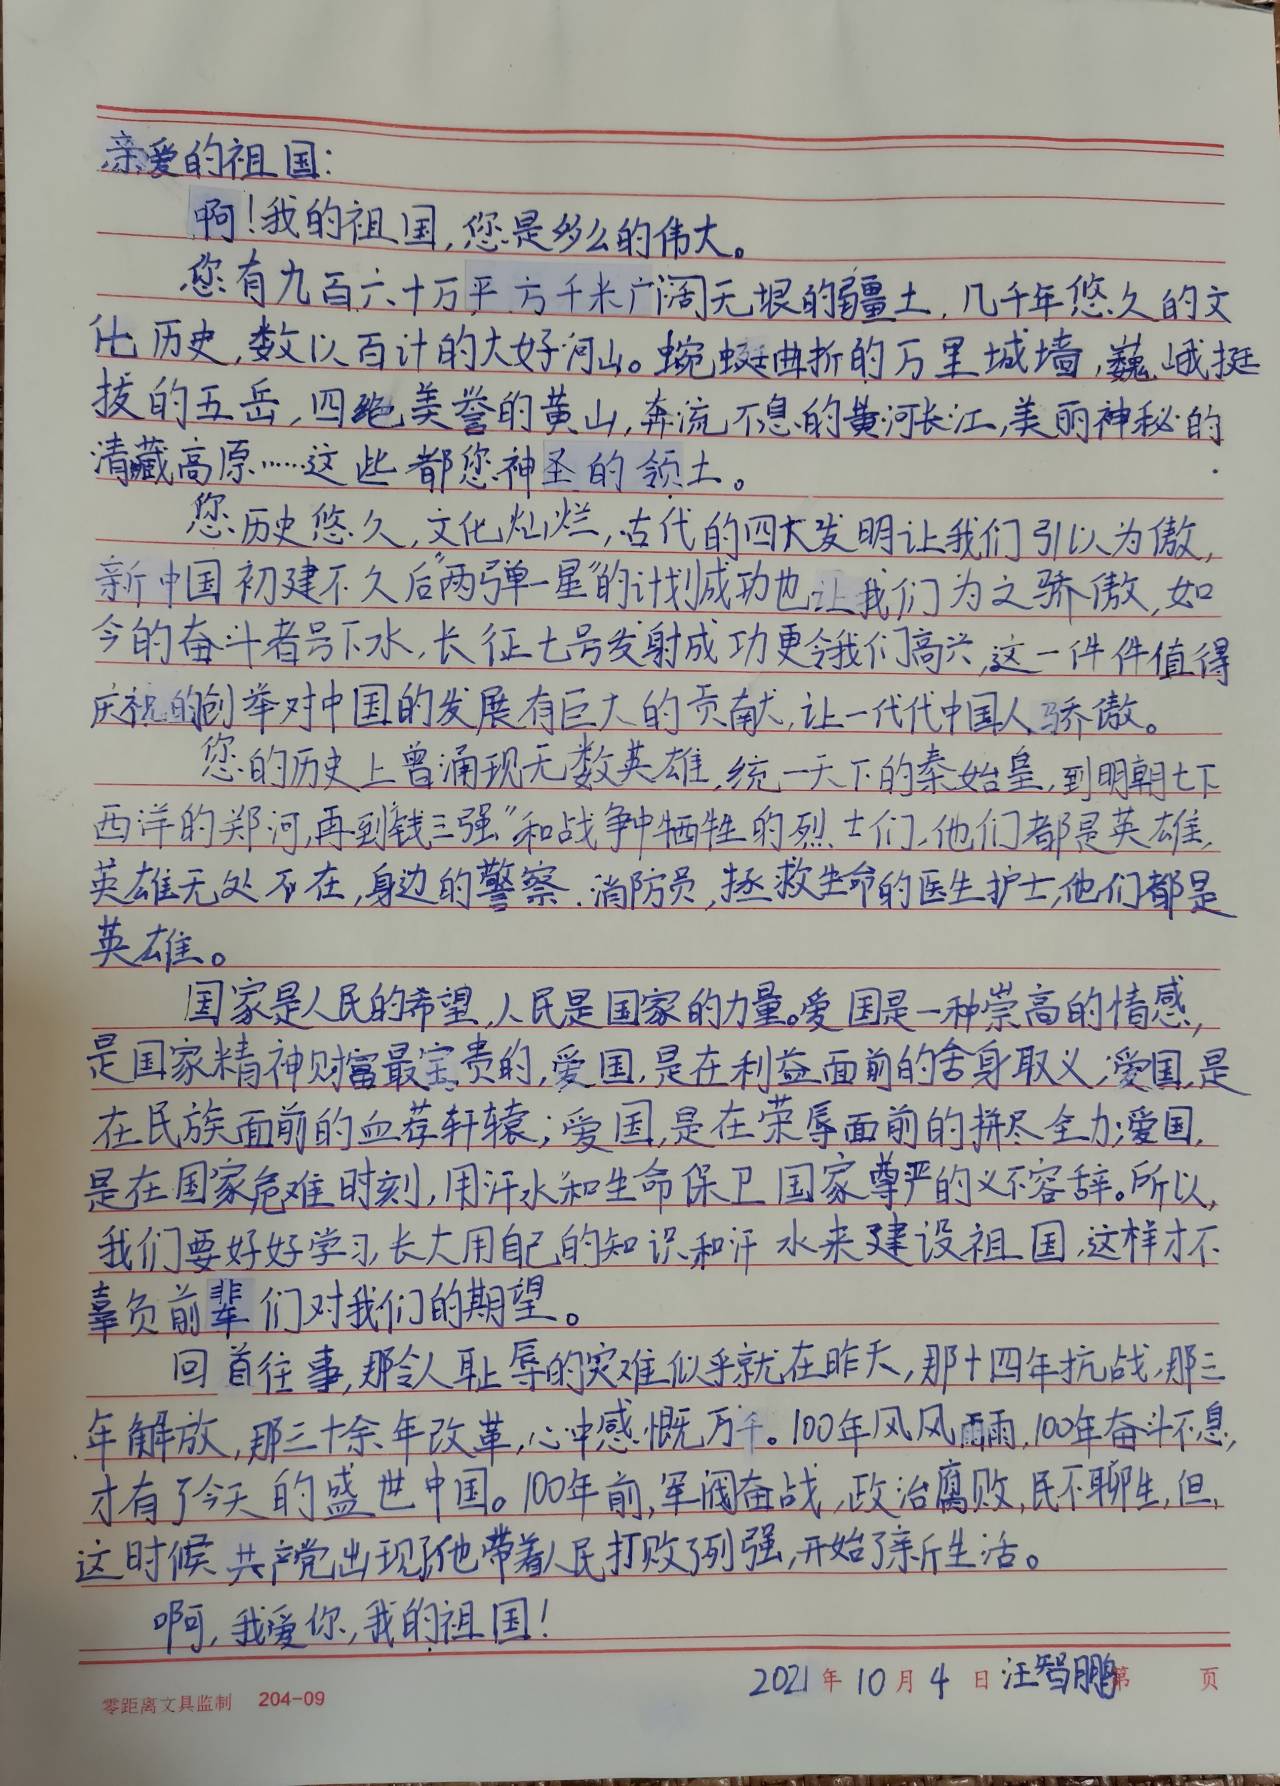 亲爱的祖国:
啊!我的祖国,您是多么的伟大。
您有九百六十万平方千米广阔无垠的疆土,几千年悠久的文
化历史,数以百计的大好河山。蜿蜒曲折的万里城墙,巍峨挺
拔的五岳,四绝美誉的黄山,奔流不息的黄河长江,美丽神秘的
清藏高原……这些都您神圣的领土。
您历史悠久,文化灿烂,古代的四大发明让我们引以为傲,
新中国初建不久后"两弹一星"的计划成功也让我们为之骄傲,如
今的奋斗者号下水,长征七号发射成功更令我们高兴,这一件件值得
庆祝的创举对中国的发展有巨大的贡献,让一代代中国人骄傲。
您的历史上曾涌现无数英雄,统一天下的秦始皇,到明朝七下
西洋的郑河,再到"钱三强"和战争中牺牲的烈士们,他们都是英雄,
英雄无处不在,身边的警察、消防员,拯救生命的医生护士,他们都是
英雄。
国家是人民的希望,人民是国家的力量。爱国是一种崇高的情感,
是国家精神财富最宝贵的,爱国,是在利益面前的舍身取义;爱国,是
在民族面前的血荐轩辕;爱国,是在荣辱面前的拼尽全力;爱国,
是在国家危难时刻,用汗水和生命保卫国家尊严的义不容辞。所以,
我们要好好学习,长大用自己的知识和汗水来建设祖国,这样才不
辜负前辈们对我们的期望。
回首往事,那令人耻辱的灾难似乎就在昨天,那十四年抗战,那三
年解放,那三十余年改革,心中感慨万千。100年风风雨雨,100年奋斗不息,
才有了今天的盛世中国。100年前,军阀奋战,政治腐败,民不聊生,但,
这时候共产党出现了他带着人民打败了列强,开始了新生活。
啊,我爱你,我的祖国!
2021年10月4日汪智鹏第 页
零距离文具监制 204-09